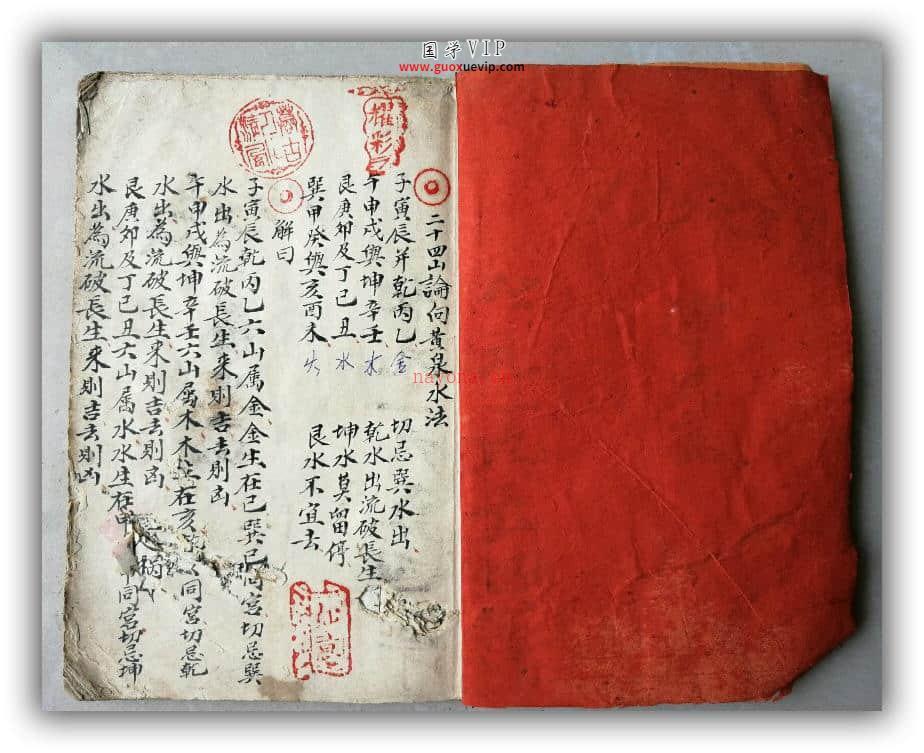 国学VIP
www.guoxuevip.com
耀彩
二十四山論向黃泉水法
子寅辰并乾丙乙金 切忌巽水出
午申戌與坤辛壬木 乾水出流破長生
艮庚卯及丁巳丑水 坤水莫畄停
巽甲癸與亥酉未火 艮水不宜去
解曰
子寅辰乾丙乙六山属金金生在巳巽巳同宮切忌巽
水出為流破長生来則吉去則凶
午申戌與坤辛壬六山属木木生在亥同宮切忌乾
水出為流破長生来則吉去則凶
艮庚卯及丁巳丑六山属水水生在申同宮切忌坤
水出為流破長生来則吉去則凶